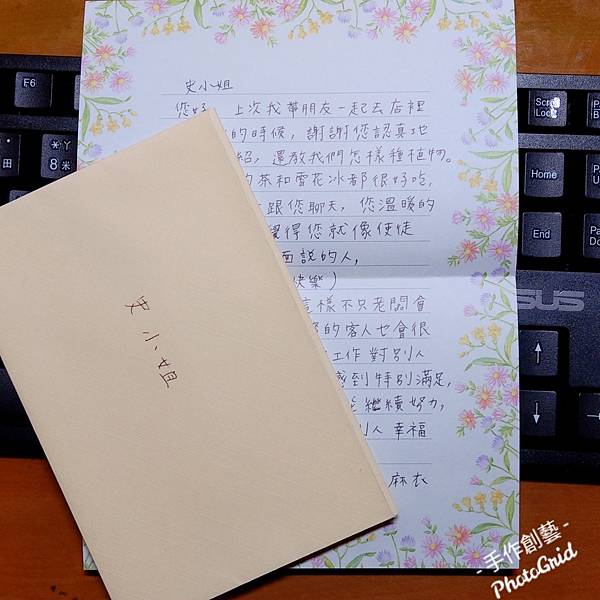 史小姐
您好, 上次我帶朋友一起去店裡
的時候, 謝謝您認真地
紹, 還教我們怎樣種植物。
的茶和雪花冰都很好吃,
跟您聊天, 您溫暖的
覺得您就像使徒
面說的人,
快樂)
這樣不只老闆會
的客人也會很
工作對別人
感到特別滿足,
繼續努力,
別人幸福
麻衣
史小姐
E6
田
*
ㄚ
8
米
Scroll
Lock
Home
End
SUS
- 手作創藝 -
PhotoGrid